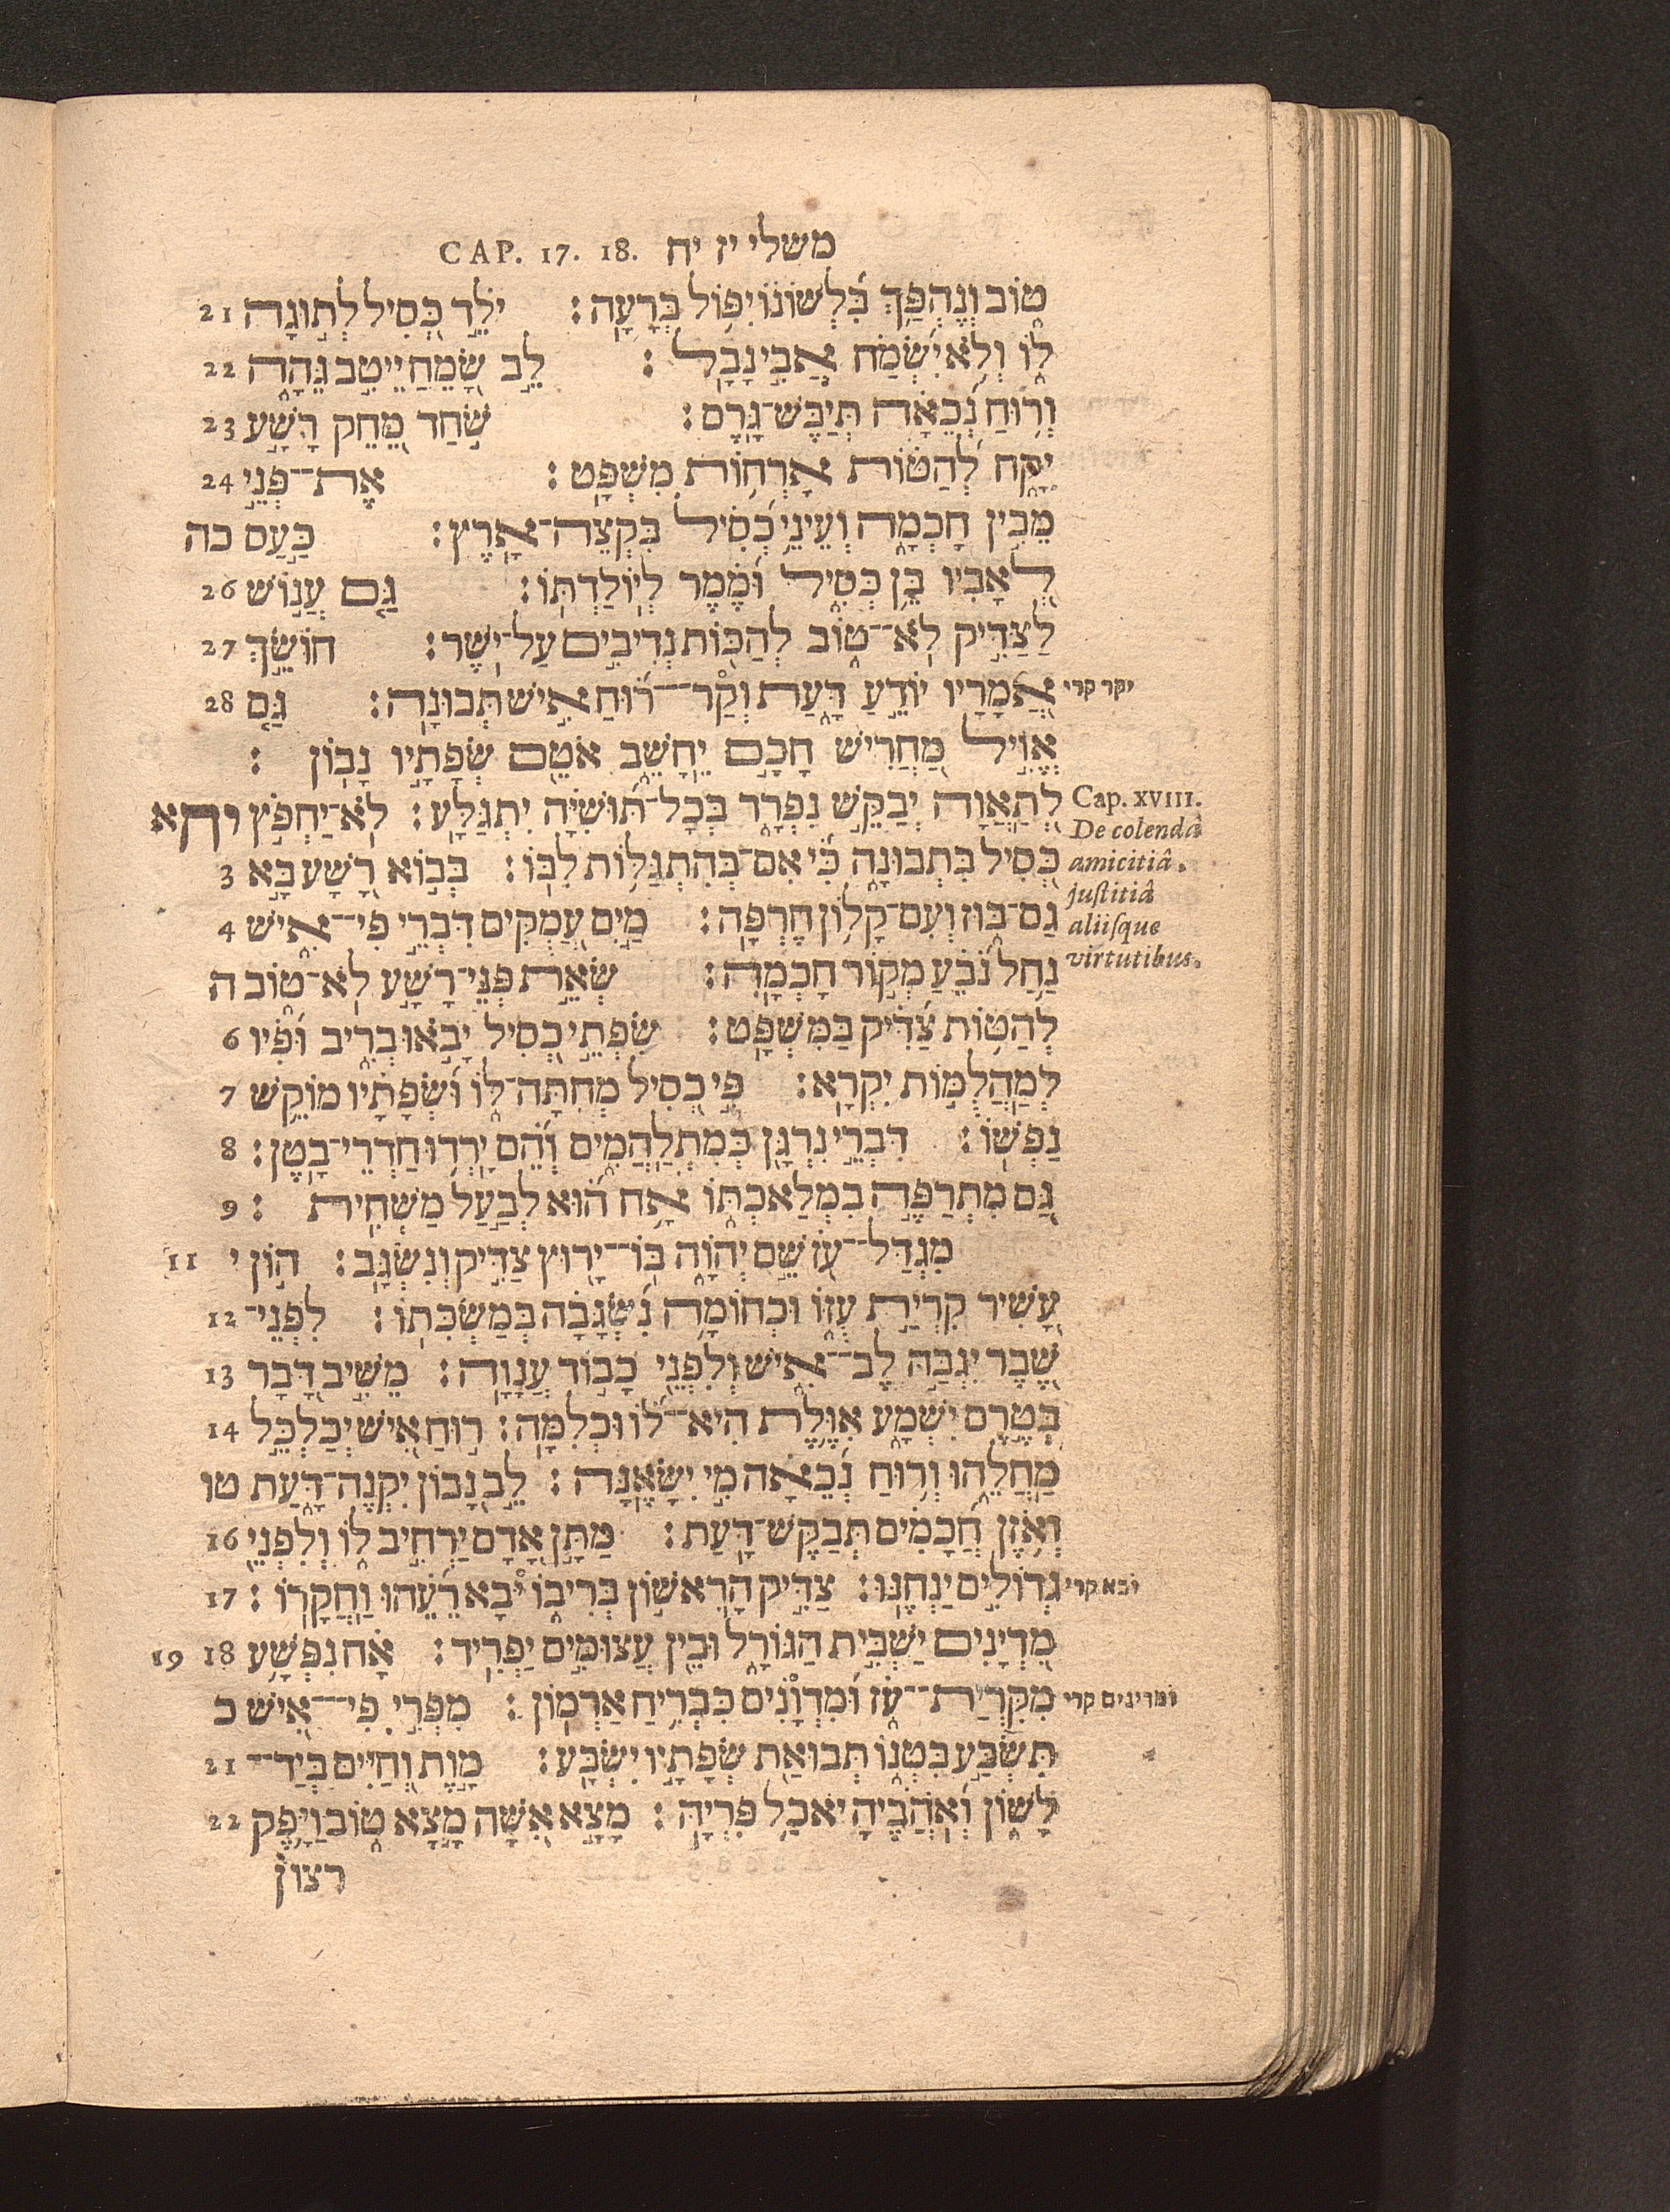 משלי יז יח CAP. 17. 18.
טוֹב וְנֶהְפַּךְ בִּלְשׁוֹנוֹ יִפּוֹל בְּרָעָה׃ יֹלֵד כְּסִיל לְתוּגָה 21
לוֹ וְלֹא יִשְׂמַח אֲבִי נָבָל׃ לֵב שָׂמֵחַ יֵיטִב גֵּהָה 22
וְרוּחַ נְכֵאָה תְּיַבֶּשׁ־גָּרֶם׃ שֹׁחַד מֵחֵק רָשָׁע 23
יִקָּח לְהַטּוֹת אָרְחוֹת מִשְׁפָּט׃ אֶת־פְּנֵי 24
מֵבִין חָכְמָה וְעֵינֵי כְסִיל בִּקְצֵה־אָרֶץ׃ כַּעַס כה
לְאָבִיו בֵּן כְּסִיל וּמֶמֶר לְיוֹלַדְתּוֹ׃ גַּם עֲנוֹשׁ 26
לַצַּדִּיק לֹא־טוֹב לְהַכּוֹת נְדִיבִים עַל־יֹשֶׁר׃ חוֹשֵׂךְ 27
אֲמָרָיו יוֹדֵעַ דָּעַת וְקַר־רוּחַ אִישׁ תְּבוּנָה׃ גַּם 28
יקר קרי
אֱוִיל מַחֲרִישׁ חָכָם יֵחָשֵׁב אֹטֵם שְׂפָתָיו נָבוֹן׃
לְתַאֲוָה יְבַקֵּשׁ נִפְרָד בְּכָל־תּוּשִׁיָּה יִתְגַּלָּע׃ לֹא־יַחְפֹּץ יח א
Cap. XVIII.
De colendâ
כְּסִיל בִּתְבוּנָה כִּי אִם־בְּהִתְגַּלּוֹת לִבּוֹ׃ בְּבוֹא רָשָׁע בָּא 3
amicitiâ.
justitiâ
גַם־בּוּז וְעִם־קָלוֹן חֶרְפָּה׃ מַיִם עֲמֻקִּים דִּבְרֵי פִי־אִישׁ 4
aliisque
נַחַל נֹבֵעַ מְקוֹר חָכְמָה׃ שְׂאֵת פְּנֵי־רָשָׁע לֹא־טוֹב ה
virtutibus.
לְהַטּוֹת צַדִּיק בַּמִּשְׁפָּט׃ שִׂפְתֵי כְסִיל יָבֹאוּ בְרִיב וּפִיו 6
לְמַהֲלֻמוֹת יִקְרָא׃ פִּי כְסִיל מְחִתָּה־לוֹ וּשְׂפָתָיו מוֹקֵשׁ 7
נַפְשׁוֹ׃ דִּבְרֵי נִרְגָּן כְּמִתְלַהֲמִים וְהֵם יָרְדוּ חַדְרֵי־בָטֶן׃ 8
גַּם מִתְרַפֶּה בִמְלַאכְתּוֹ אָח הוּא לְבַעַל מַשְׁחִית׃ 9
מִגְדַּל־עֹז שֵׁם יְהוָה בּוֹ־יָרוּץ צַדִּיק וְנִשְׂגָּב׃ הוֹן י 11
עָשִׁיר קִרְיַת עֻזּוֹ וּכְחוֹמָה נִשְׂגָּבָה בְּמַשְׂכִּתוֹ׃ לִפְנֵי־ 12
שֶׁבֶר יִגְבַּהּ לֶב־אִישׁ וְלִפְנֵי כָבוֹד עֲנָוָה׃ מֵשִׁיב דָּבָר 13
בְּטֶרֶם יִשְׁמָע אִוֶּלֶת הִיא־לוֹ וּכְלִמָּה׃ רוּחַ אִישׁ יְכַלְכֵּל 14
מַחֲלֵהוּ וְרוּחַ נְכֵאָה מִי יִשָּׂאֶנָּה׃ לֵב נָבוֹן יִקְנֶה־דָּעַת טו
וְאֹזֶן חֲכָמִים תְּבַקֶּשׁ־דָּעַת׃ מַתָּן אָדָם יַרְחִיב לוֹ וְלִפְנֵי 16
גְדוֹלִים יַנְחֶנּוּ׃ צַדִּיק הָרִאשׁוֹן בְּרִיבוֹ יָבָא רֵעֵהוּ וַחֲקָרוֹ׃ 17
ובא קרי
מִדְיָנִים יַשְׁבִּית הַגּוֹרָל וּבֵין עֲצוּמִים יַפְרִיד׃ אָח נִפְשָׁע 18 19
מִקִּרְיַת־עֹז וּמִדְוָנִים כִּבְרִיחַ אַרְמוֹן׃ מִפְּרִי פִי־אִישׁ כ
ומדינים קרי
תִּשְׂבַּע בִּטְנוֹ תְּבוּאַת שְׂפָתָיו יִשְׂבָּע׃ מָוֶת וְחַיִּים בְּיַד־ 21
לָשׁוֹן וְאֹהֲבֶיהָ יֹאכַל פִּרְיָהּ׃ מָצָא אִשָּׁה מָצָא טוֹב וַיָּפֶק 22
רצון